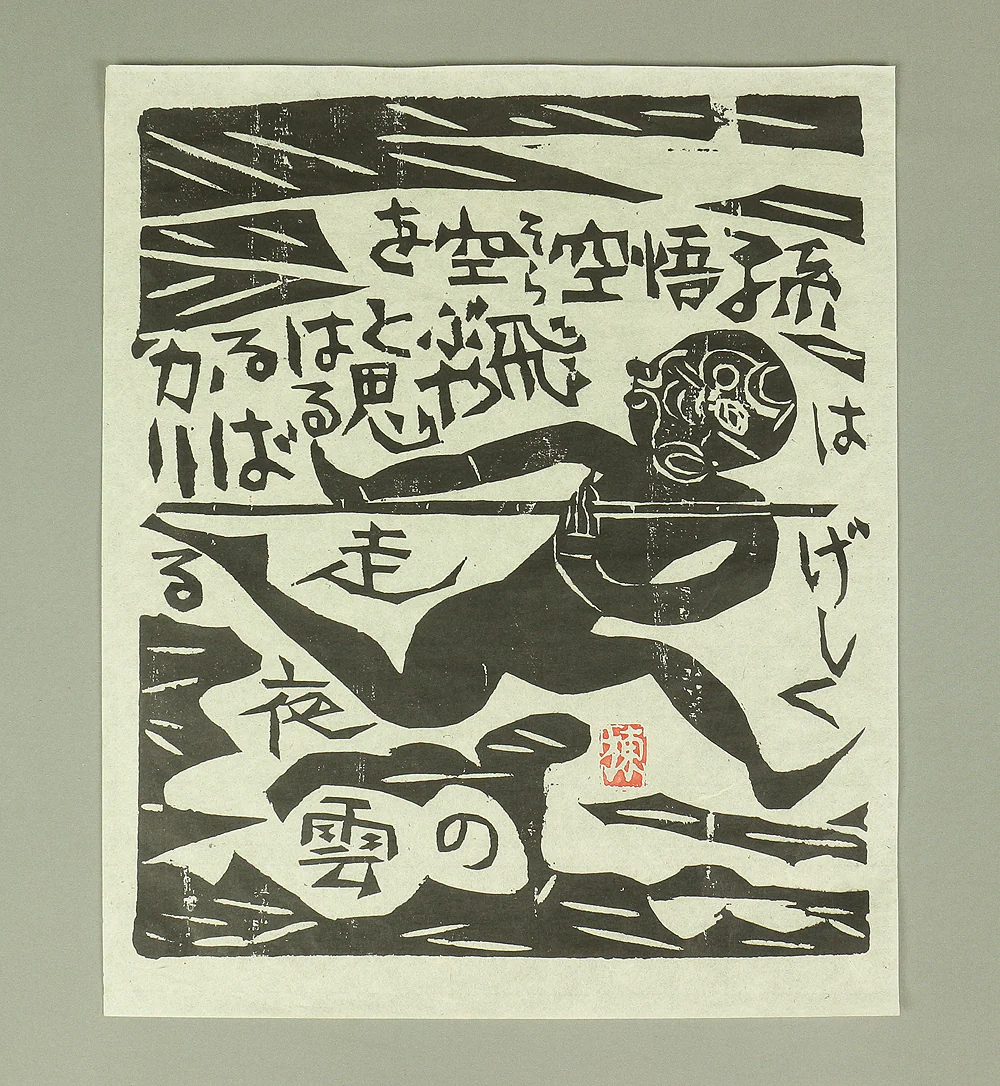 孫悟空空を
そら
飛ぶやと思はるるばかり
はげしく
走る
夜の
雲
棟